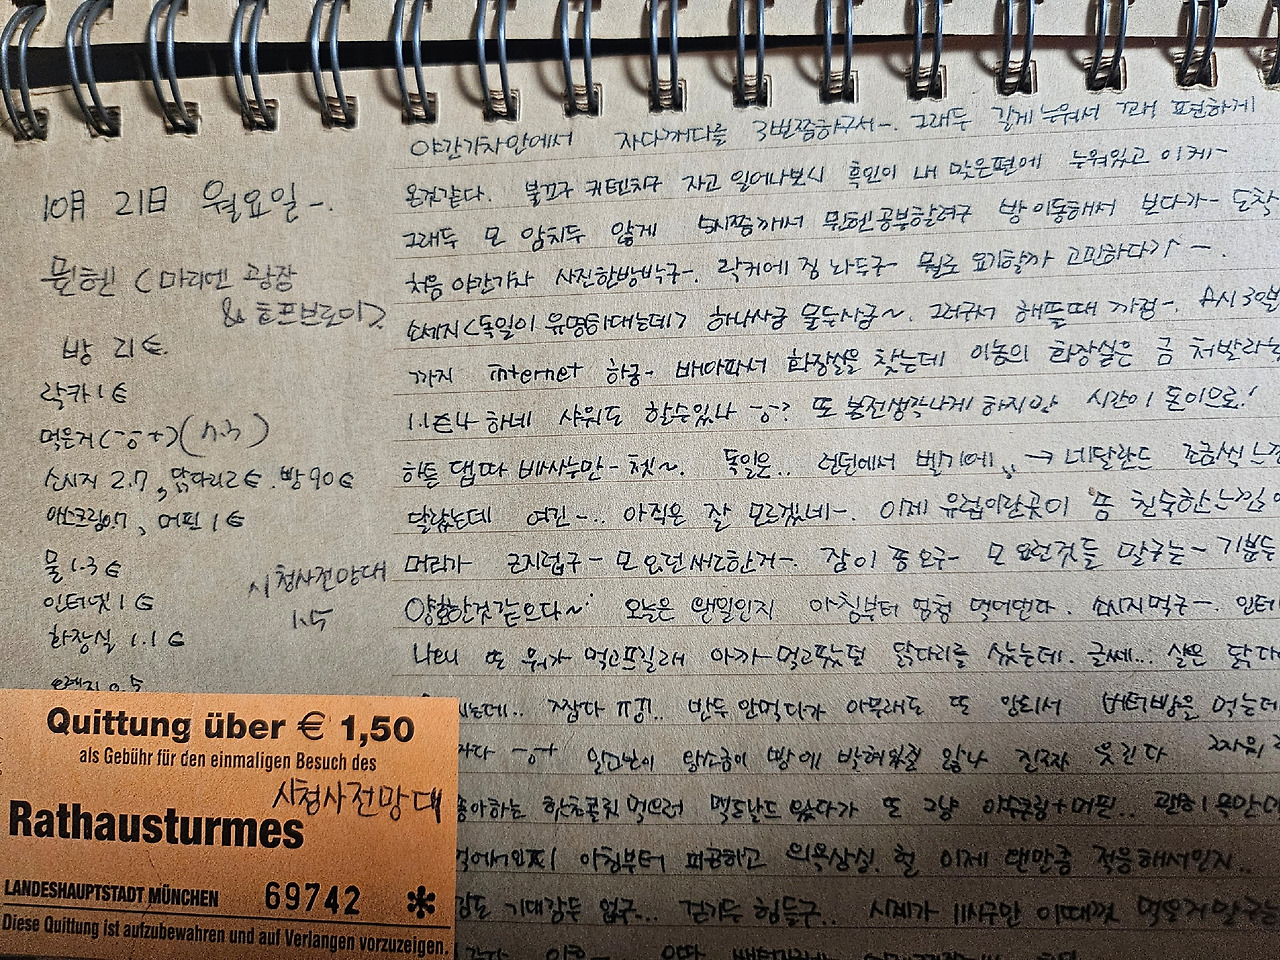 10月 21日 월요일-.
뮌헨 (마리엔 광장
& 호프브로이)
방 21€.
락카 1€
먹은거
소시지 2.7, 닭다리2€. 빵90€
아스크림0.7, 머핀 1€
물 1.3€
인터넷 1€
화장실 1.1€
오렌지 0.5
시청사전망대
1.5
야간기차안에서 자다깨다를 3번쯤하구서-. 그래두 길게 누워서 꽤 표현하게
온것같다. 불끄구 커텐치구 자고 일어나보시 흑인이 내 맞은편에 누워있고
그래두 모 암치두 않게 5시쯤깨서 뮌헨공부할려구 방이동해서 보다가- 도착
처음 야간기차 사진한방박구-. 락커에 짐 놔두구- 뭘로 요기할까 고민하다가-
소세지(독일이 유명하대는데) 하나사급 물두사급~. 그러구서 해뜰때 까정-. 8시30분
까지 internet 하궁- 배아파서 화장실을 찾는데 이놈의 화장실은 금 처발라놨
1.1€나 하네 샤워도 할수있나 또 본전생각나게 하지만 시간이 돈이으로!
독일은.. 런던에서 벨기에 → 네달란드 조금씩 느낌
달랐는데 여긴-.. 아직은 잘 모르겠네-. 이제 유럽이란곳이 좀 친숙한느낌
머리가 근지럽구- 모 요런 잠이 좀 오구- 모 요런것들 말구는- 기분두
양호한것같으다~ 오늘은 왠일인지 아침부터 엄청 먹어댄다. 소시지먹구-. 인터넷
나니 또 뭐가 먹고프길래 아까-먹고팠던 닭다리를 샀는데. 글쎄... 살은 닭다
는데.. 짜다 반두 안먹다가 아무래도 또 안되서 버터빵을 먹는데
짜다 왕소금이 빵에 진짜 웃긴다
좋아하는 핫초콜릿 먹으러 맥도날드 갔다가 또 그냥 아스크림+머핀.. 괜히 목만
아침부터 피곤하고 의욕상실. 헐 이제 왠만큼 적응해서인지..
감도 기대감두 없구... 걷기두 힘들구.. 시계가 11시구만 이때껏 먹은거말구는
Quittung über € 1,50
als Gebühr für den einmaligen Besuch des
시청사전망대
Rathausturmes
LANDESHAUPTSTADT MÜNCHEN 69742 *
Diese Quittung ist aufzubewahren und auf Verlangen vorzuzeigen.